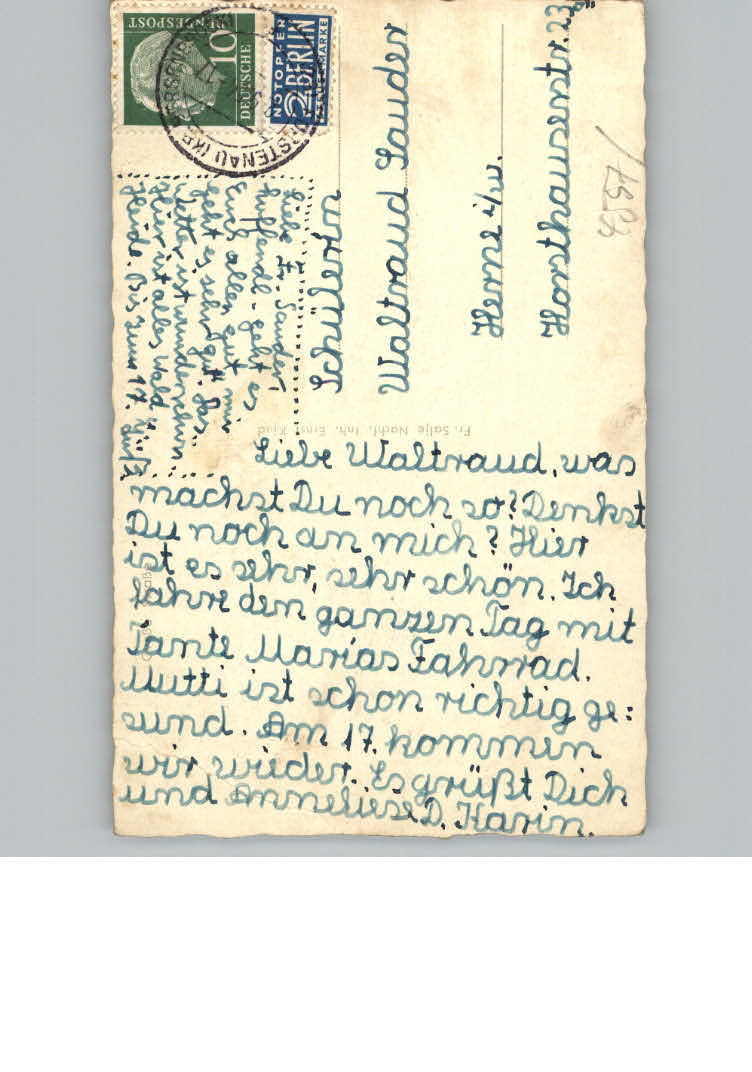 Liebe Waltraud, was
machst Du noch so? Denkst
Du noch an mich? Hier
ist es sehr, sehr schön. Ich
fahre den ganzen Tag mit
Tante Marias Fahrrad.
Mutti ist schon richtig ge:
sund. Am 17. kommen
wir wieder. Es grüßt Dich
und Anneliese D. Karin.
Liebe Fr. Sauder,
hoffendl. geht es
Euch allen gut, mir
geht es sehr gut. Das
Wetter ist wunderschön
Hier ist alles Wald u.
Heide. Bis zum 17.
Schülerin
Waltraud Sauder
Herne i/w.
Horsthauserstr. 23
Fr. Salje Nachf. Inh. Ernst Kind
DEUTSCHE
BUNDESPOST
10
NOTOPFER
2 BERLIN
STEUERMARKE